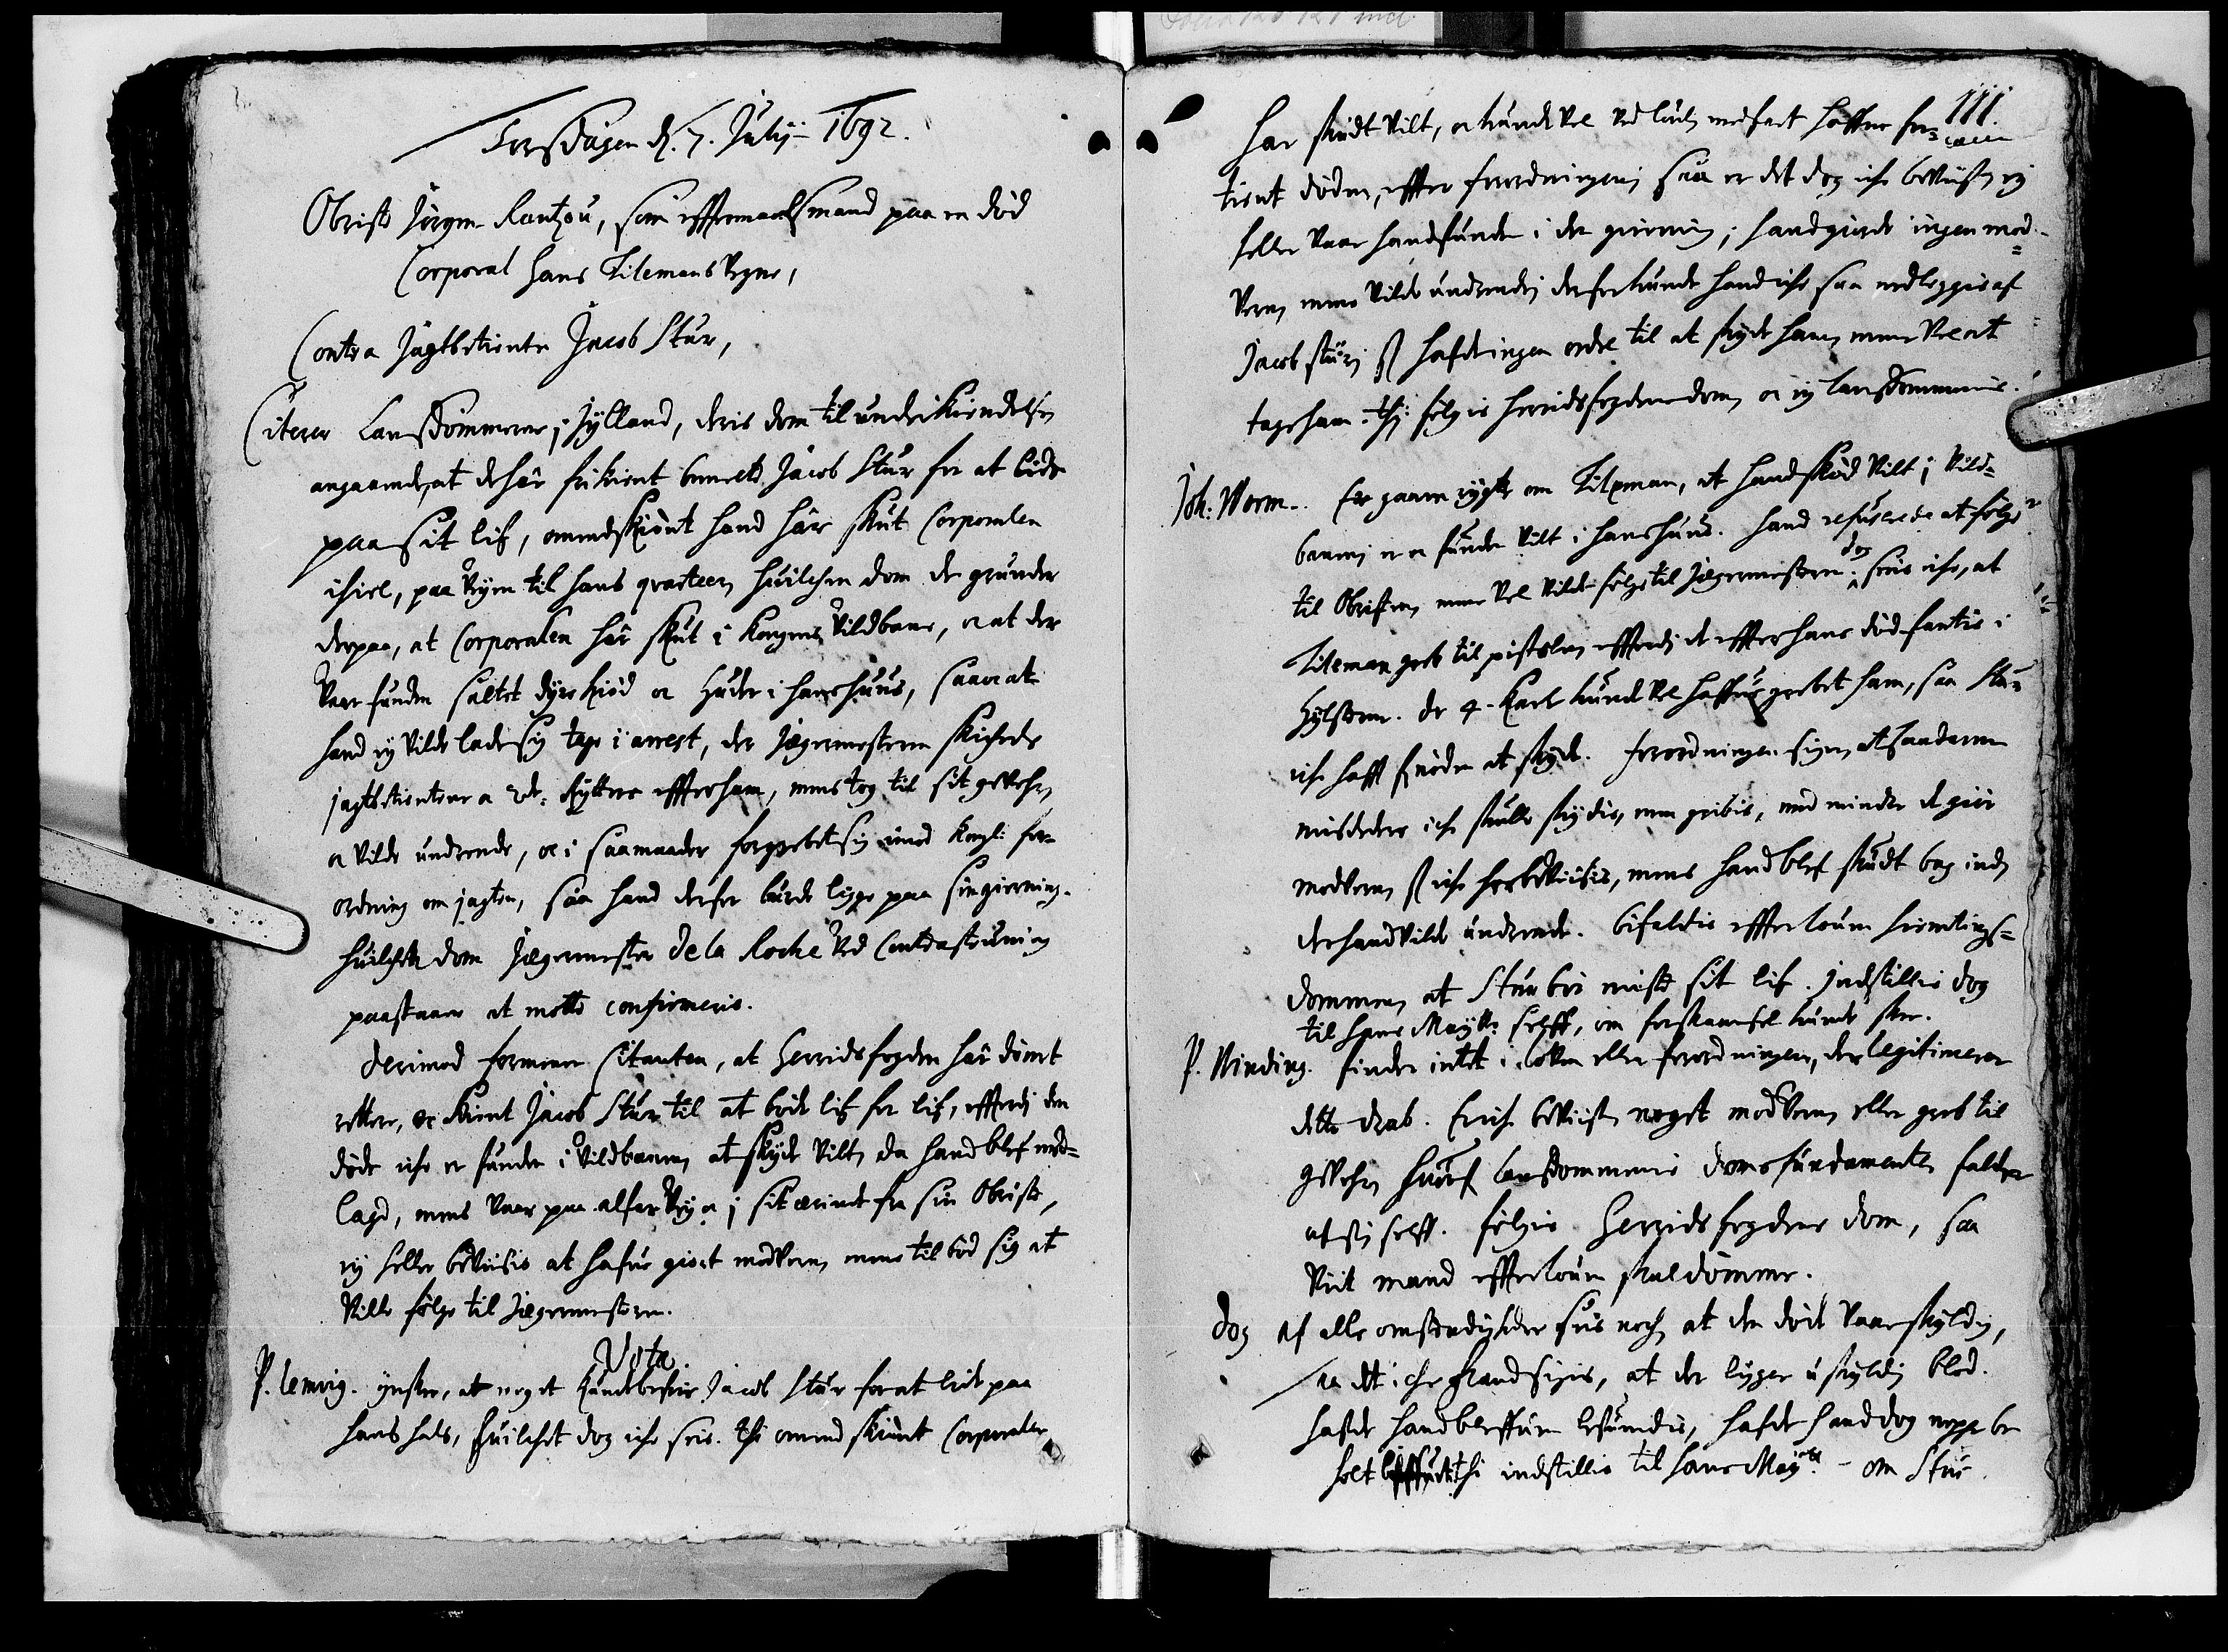 Torsdagen d. 7. Julij 1692.
Obriste Jörgen Rantzou, som efftermaalsmand paa en död
Corporal Hans Tilemans Vegne,
Contra Jagtbetiente Jacob Stur,
Citerer Landsdommerne i Jylland, deris dom til underkiendelse,
angaaende, at de har frikient bemelte Jacob Stur for at böde
paa sit lif, omendskiönt hand har skut Corporalen
ihiel, paa Veyen til hans qvarteer, huilchen dom de grunder
derpaa, at Corporalen har skut i Kongens Vildbane, oc at der
Vaar funden saltet dyrekiöd oc Huder i hans huus, saa oc at
hand ey Vilde lade sig tage i arrest, der Jegermesteren skichede
jagtbetientere oc Ryttere effter ham, mens tog til sit gevehr,
oc Vilde undrende, oc i saa maader forgrebet sig imod Kongl: for-
ordning om jagten, saa hand derfor burde ligge paa sin gierning.
huilchen dom Jegermester de la Roche Ved Contrastevning
paastaaer at motte confirmeris.
Derimod formener Citanten, at Herridsfogden har dömt
rettere, oc kient Jacob Stur til at böde lif for lif, efferdi den
döde iche er funden i Vildbanen, at skyde Vilt, da hand blef ned-
lagd, mens Vaar paa alfar Vey oc i sit ærinde fra sin Obriste,
ey heller beviisis at hafue giort modVern, mens tilböd sig at
Ville fölge til Jegermesteren.
Vota.
P. Lemvig. ynsker, at noget kunde befrie Jacob Stur for at lide paa
hans hals, huilchet dog iche seis. thi omendskiönt Corporalen
111.
har skudt Vilt, oc kunde Vel Ved louen medfört haffue for-
tient döden, effter forordningen, saa er det dog iche beviist, ey
heller Vaar hand funden i den gierning; hand giorde ingen mod-
Vern, mens Vilde undrende, derfor kunde hand iche saa nedleggis af
Jacob Stur, hafde ingen ordre til at skyde ham, mens Vel at
tage ham. thi fölgis herridsfogdens dom, oc ey landsdommernis.
Joh: Worm. Er gaaen rygte om Tileman, at hand sköd Vilt i Vild-
banen, er oc funden Vilt i hans huus. Hand refuserede at fölge
til Obristen, mens Vel Vilde fölge til Jegermesteren. dog seis iche, at
Tileman greb til pistolen, efferdi de effter hans död fantis i
Hylstrene. De 4 Karle kunde Vel haffue grebet ham, saa Stur
iche hafft fornöden at skyde. Forordningen siger, at saadanne
misdedere iche skulle skydis, men gribis, med mindre de giör
modVern, iche her beviisis, mens hand blef skudt bag ind,
der hand Vilde undrende. bifaldis effter louen hiemtings-
dommen, at Stur bör miste sit lif. Indstillis dog
til Hans Maytt: selff, om forskaansel kunde skee.
P. Vinding. finder intet i loven eller forordningen, der legitimerer
dette drab. Er iche beviist noget modVern, eller greb til
gevehr, huoraf landsdommernis doms fundamenter falder
af sig selff. fölgis Herridsfogdens dom, saa
Viit mand effter louen skal dömme.
dog af alle omstendigheder seis noch, at den döde Vaar skyldig,
saa det iche kand sigis, at der ligger uskyldig blod.
hafde hand bleffuen lefuendis, hafde hand dog neppe be
holt lifuet. thi indstillis til Hans Maytt. om Stur.